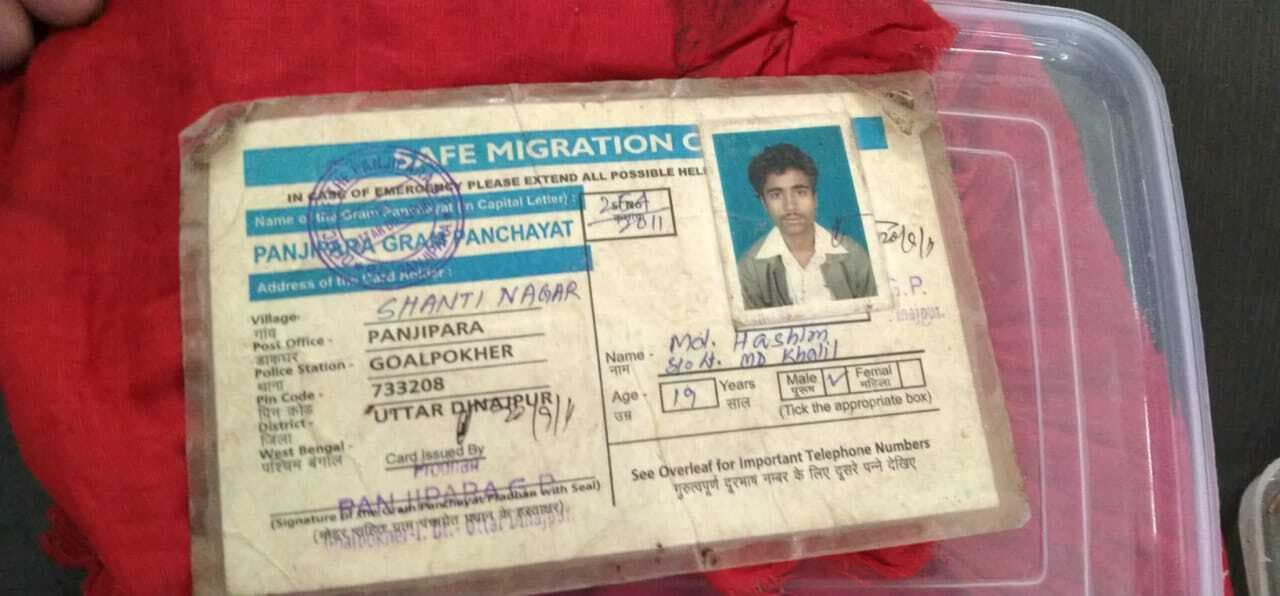 SAFE MIGRATION C
IN CASE OF EMERGENCY PLEASE EXTEND ALL POSSIBLE HEL
Name of the Gram Panchayat (in Capital Letter) :
PANJIPARA GRAM PANCHAYAT
3811
Address of the Card Holder :
Village- SHANTI NAGAR
गांव
Post Office - PANJIPARA
डाकघर
Police Station - GOALPOKHER
थाना
Pin Code - 733208
पिन कोड
District - UTTAR DINAJPUR
जिला
West Bengal -
पश्चिम बंगाल
Card Issued By
Prodhan
PANJIPARA G.P.
(Signature of the Gram Panchayat Pradhan with Seal)
Goalpokher-I, Dt.- Uttar Dinajpur.
G.P.
Name - Md. Hashim
नाम S/o Lt. MD Khalil
Age - 19 Years
उम्र साल
Male Femal
पुरूष महिला
(Tick the appropriate box)
See Overleaf for Important Telephone Numbers
गुरुत्वपूर्ण दूरभाष नम्बर के लिए दूसरे पन्ने देखिए